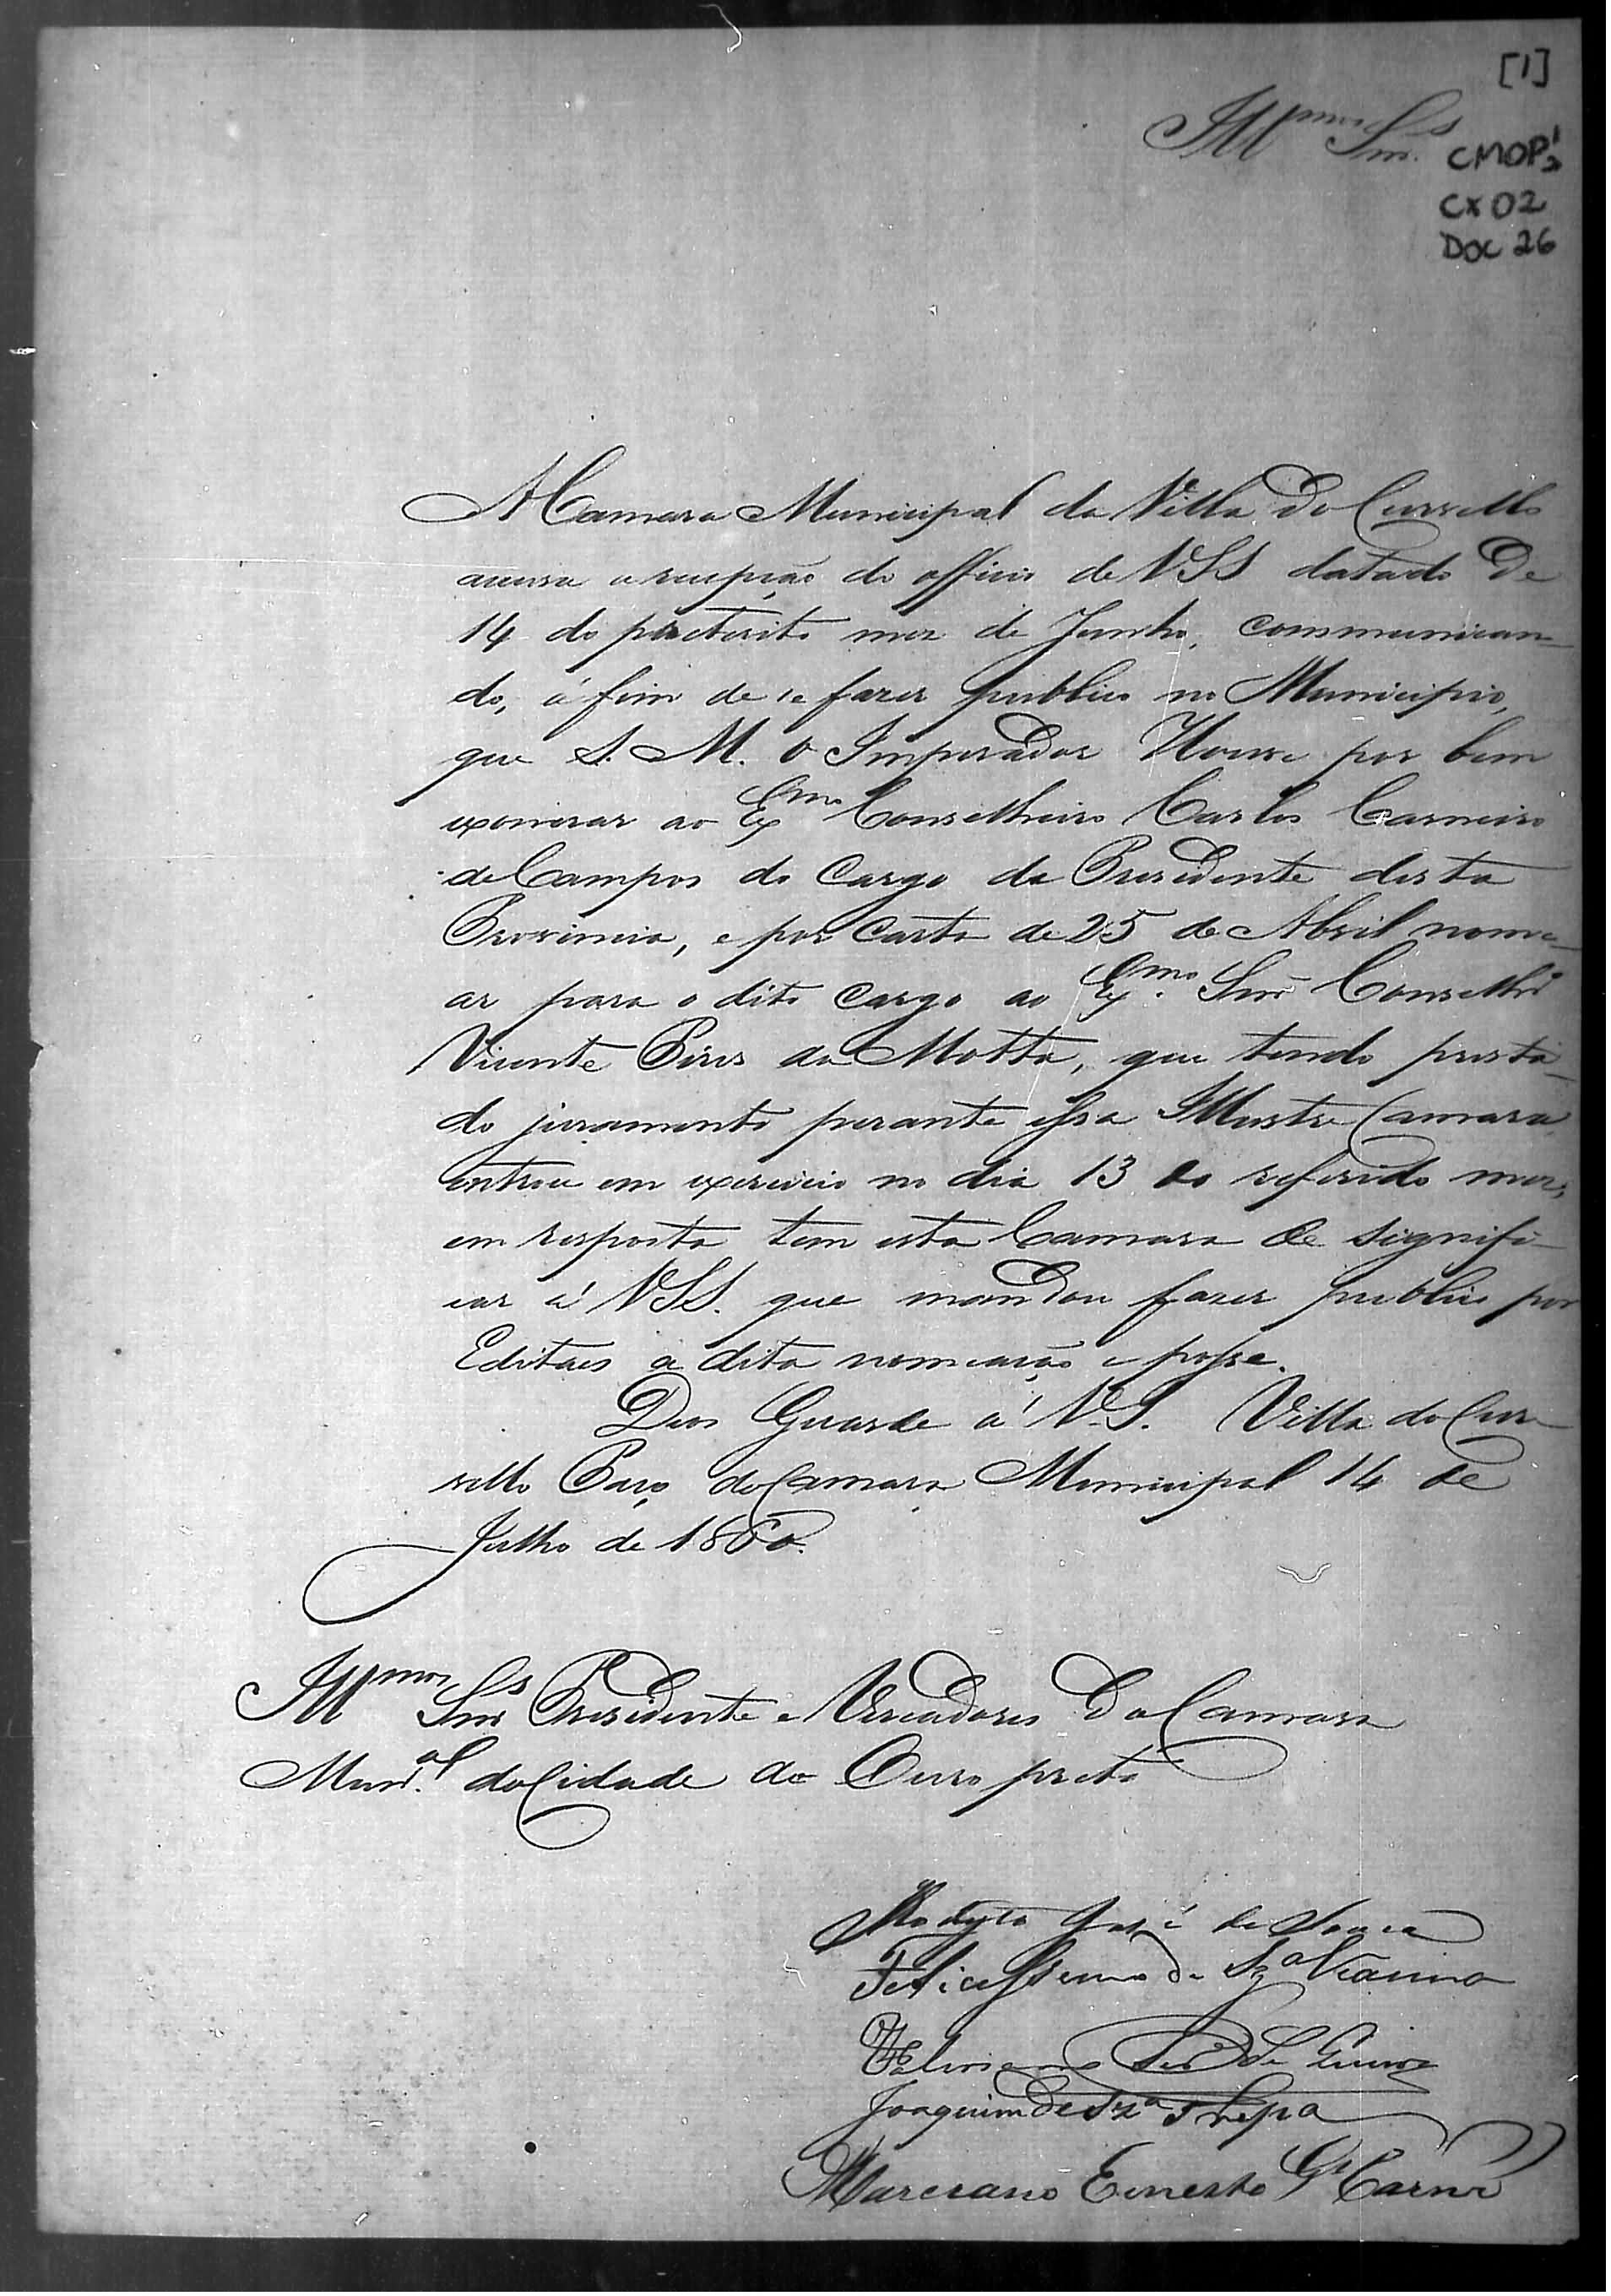 [1]
Illmos Snrs
CMOP
CX 02
DOC 26
A Camara Municipal da Villa do Curvello
acusa a recepção do officio de VSS datado de
14 do preterito mez de Junho, communican-
do, á fim de se fazer publico no Municipio,
que S. M. o Imperador Houve por bem
exonerar ao Exmo Conselheiro Carlos Carneiro
de Campos do Cargo de Presidente desta
Provincia, e por Carta de 25 de Abril nome-
ar para o dito Cargo ao Exmo. Snr Conselhro
Vicente Pires da Motta, que tendo presta-
do juramento perante essa Illustre Camara
entrou em exercicio no dia 13 do referido mez,
em resposta tem esta Camara de signifi-
car á VSS. que mandou fazer publico por
Editaes a dita nomeação e posse.
Deos Guarde á V.S. Villa do Cur-
vello Paço da Camara Municipal 14 de
Julho de 1860.
Illmos Snrs Presidente e Vereadores da Camara
Munal. da Cidade do Ouro preto
José de Souza
Felicissimo de Sza Vianna
Joaquim de Sza
Marciano Ernesto